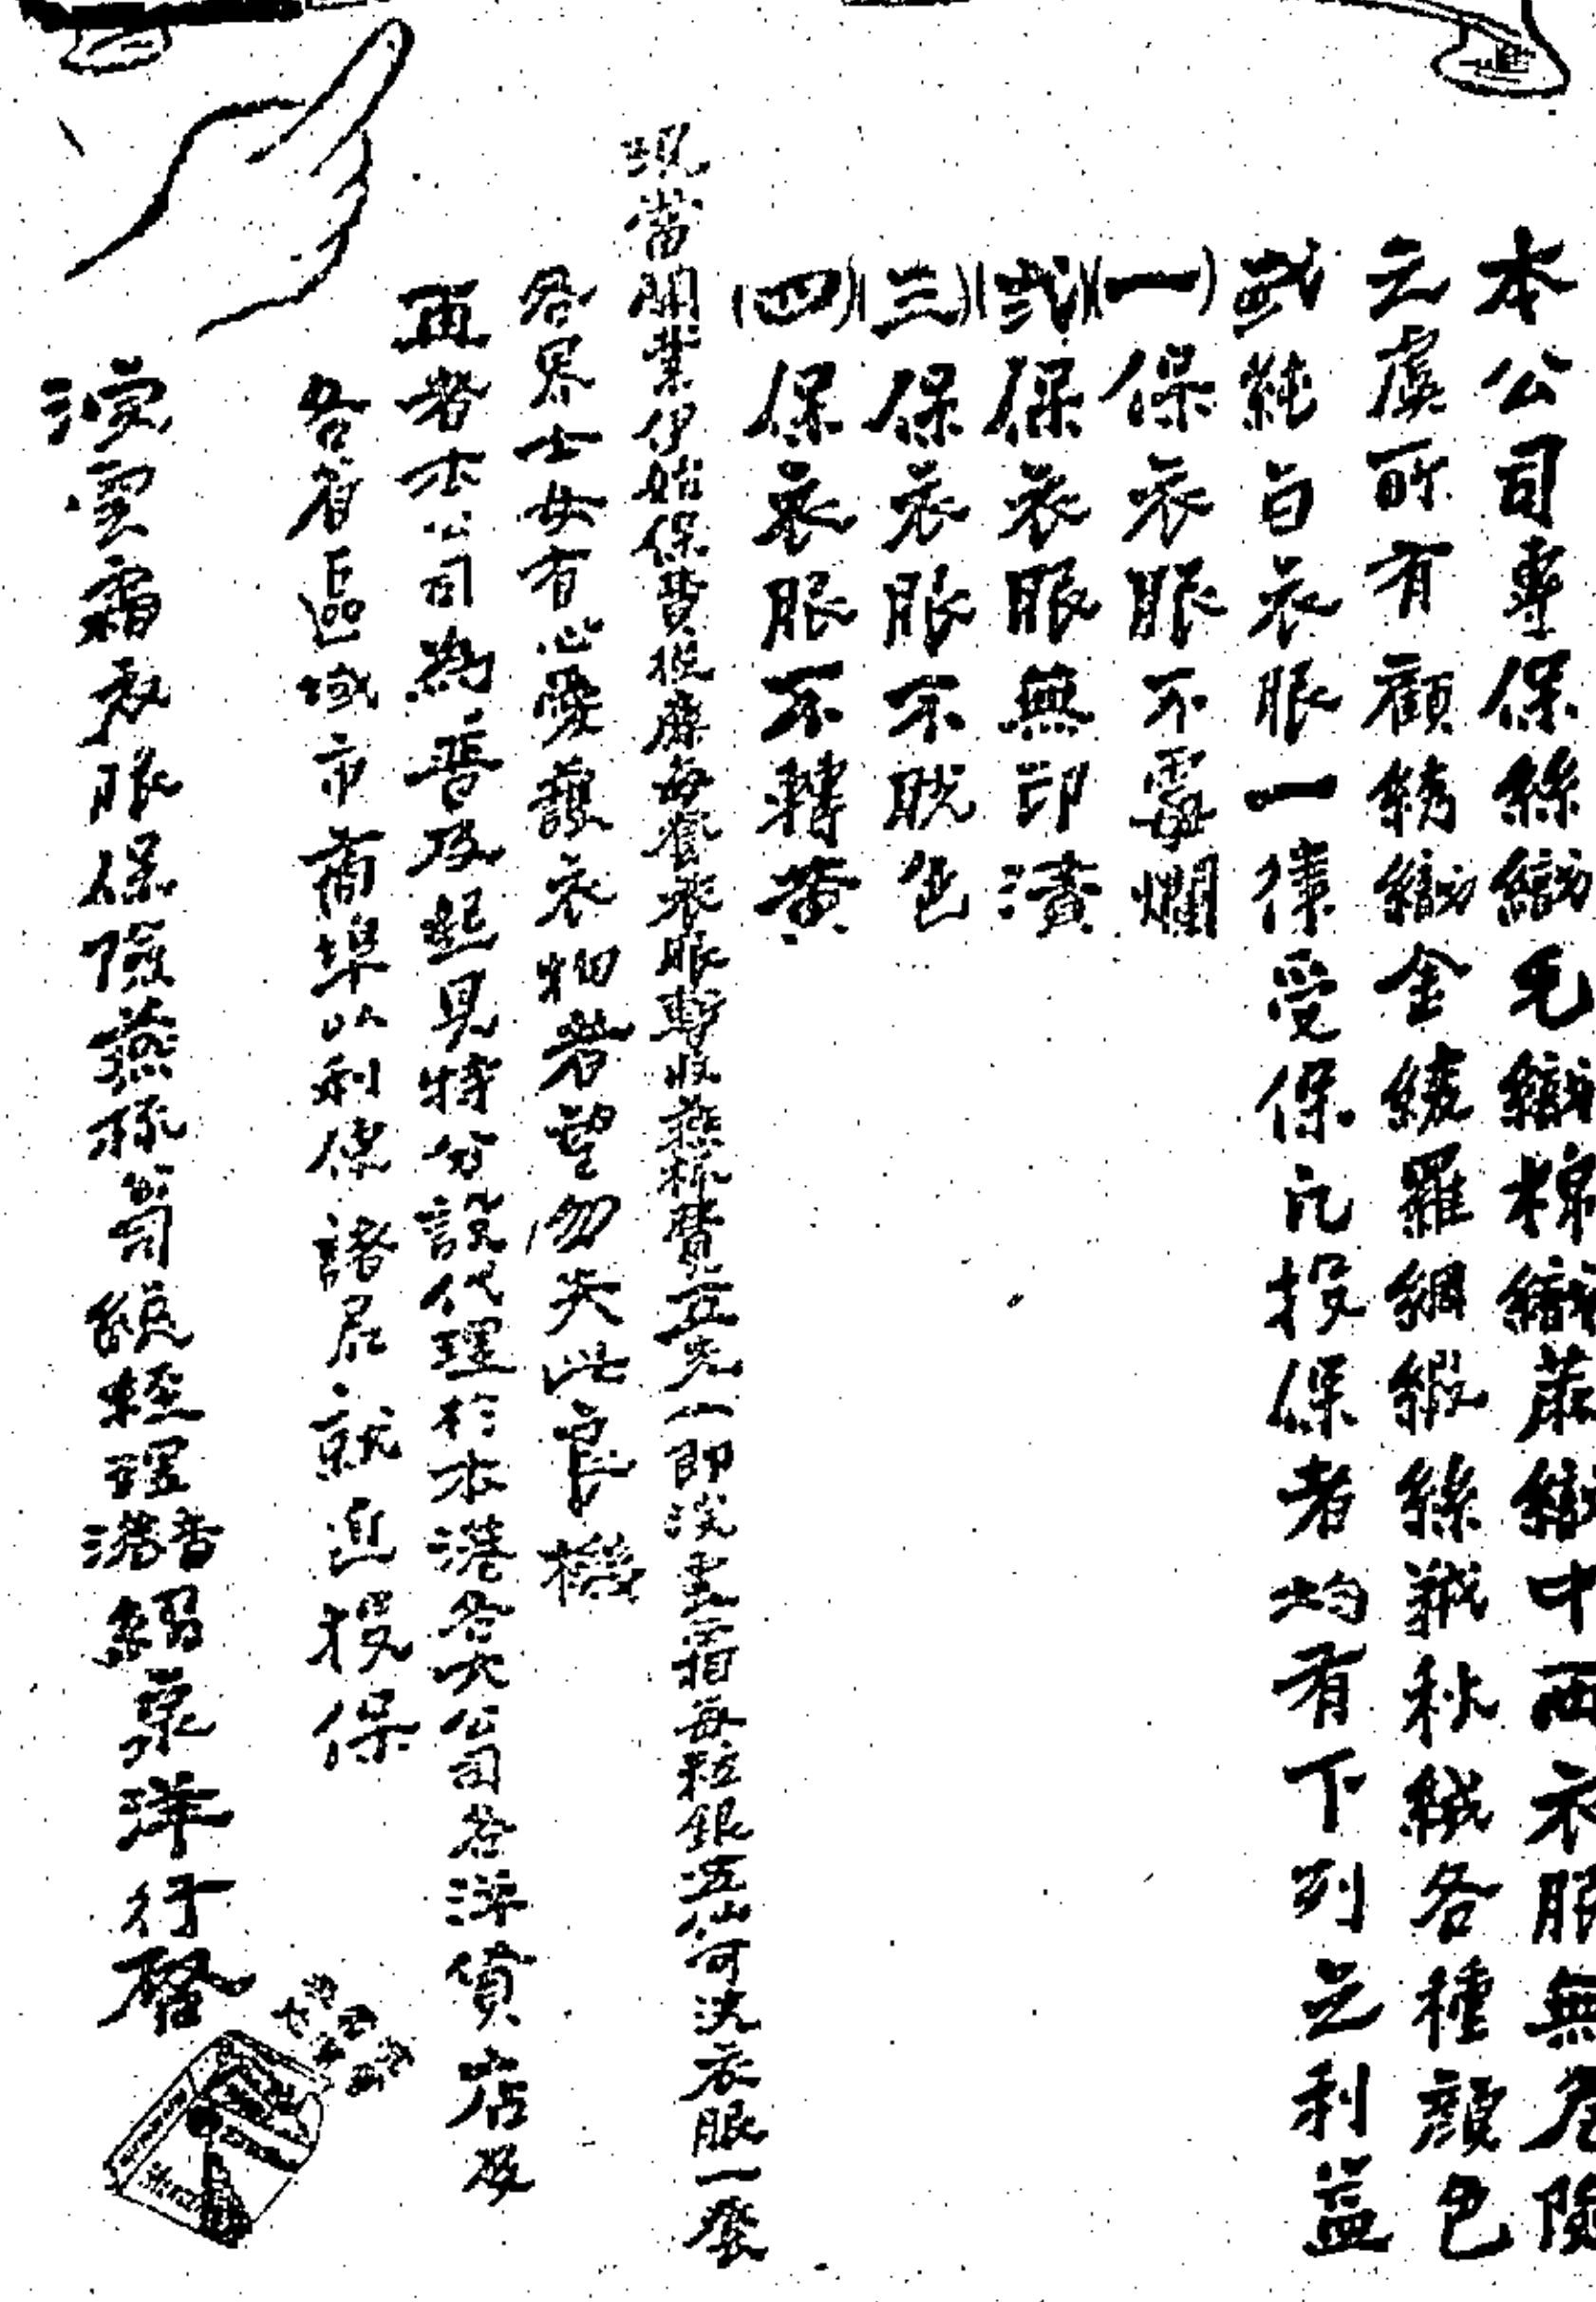 本公司專保絲織毛織棉織蔴織中西衣服無危險
之虞所有顧綉織金綾羅綢緞絲羢秋絨各種顏色
或純白衣服一律受保凡投保者均有下列之利益
(一)保衣服不霉爛
(弍)保衣服無印漬
(三)保衣服不脱色
(四)保衣服不轉黄
現當開業伊始保費極廉每套衣服暫收燕梳費五先一即浣雲霜每粒銀五仙可洗衣服一套
各界士女有心愛護衣物者望勿失此良機
再者本公司為普及起見特分設代理於本港各大公司各洋貨店及
各省區域市商埠以利便諸君就近投保
浣雲霜衣服保險燕梳公司總經理香港紹泉洋行啓